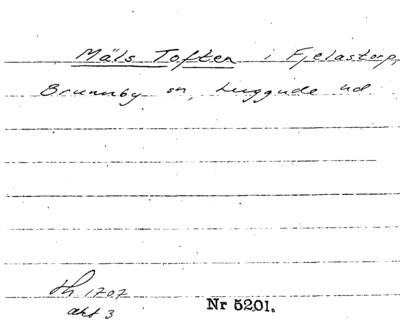 Mäls Toften i Fjelastorp,
Brunnby sn, Luggude hd
th 1707
akt 3
Nr 5201.